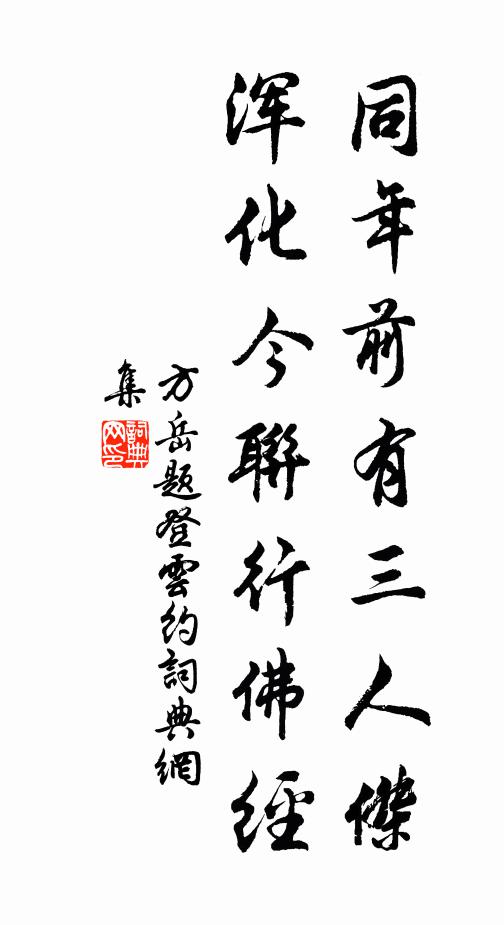 同年前有三人傑
浑化今聯行佛經
方岳題登雲約詞典網
集
詞典
网印